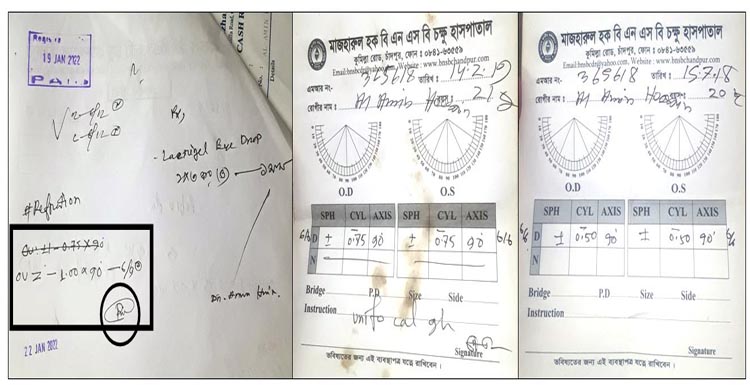 Regis
19 JAN 2022
PAID
CASH R
Details
Rx,
- Lacrigel Eye Drop
# Refraction
- 0.75 X 90
OU Z - 1.00 x 90 — 6/9
22 JAN 2022
মাজহারুল হক বি এন এস বি চক্ষু হাসপাতাল
কুমিল্লা রোড, চাঁদপুর, ফোন : ০৮৪১-৬৩৫৫৯
Email:bnsbcd@yahoo.com, Website : www.bnsbchandpur.com
এমআর নং- 369618 তারিখ 14.2.19
রোগীর নাম : Al Amin
O.D O.S
SPH CYL AXIS SPH CYL AXIS
6/6 D ± 0.75 90 ± 0.75 90 6/6
N
Bridge P.D Size Side
Instruction
unifocal gh
Signature
ভবিষ্যতের জন্য এই ব্যবস্থাপত্র যত্নে রাখিবেন।
মাজহারুল হক বি এন এস বি চক্ষু হাসপাতাল
কুমিল্লা রোড, চাঁদপুর, ফোন : ০৮৪১-৬৩৫৫৯
Email:bnsbcd@yahoo.com, Website : www.bnsbchandpur.com
এমআর নং- 369618 তারিখ 15.7.18
রোগীর নাম : Al Amin 20
O.D O.S
SPH CYL AXIS SPH CYL AXIS
6/6 D ± 0.50 90° ± 0.50 90° 6/6
N
Bridge P.D Size Side
Instruction
Signature
ভবিষ্যতের জন্য এই ব্যবস্থাপত্র যত্নে রাখিবেন।